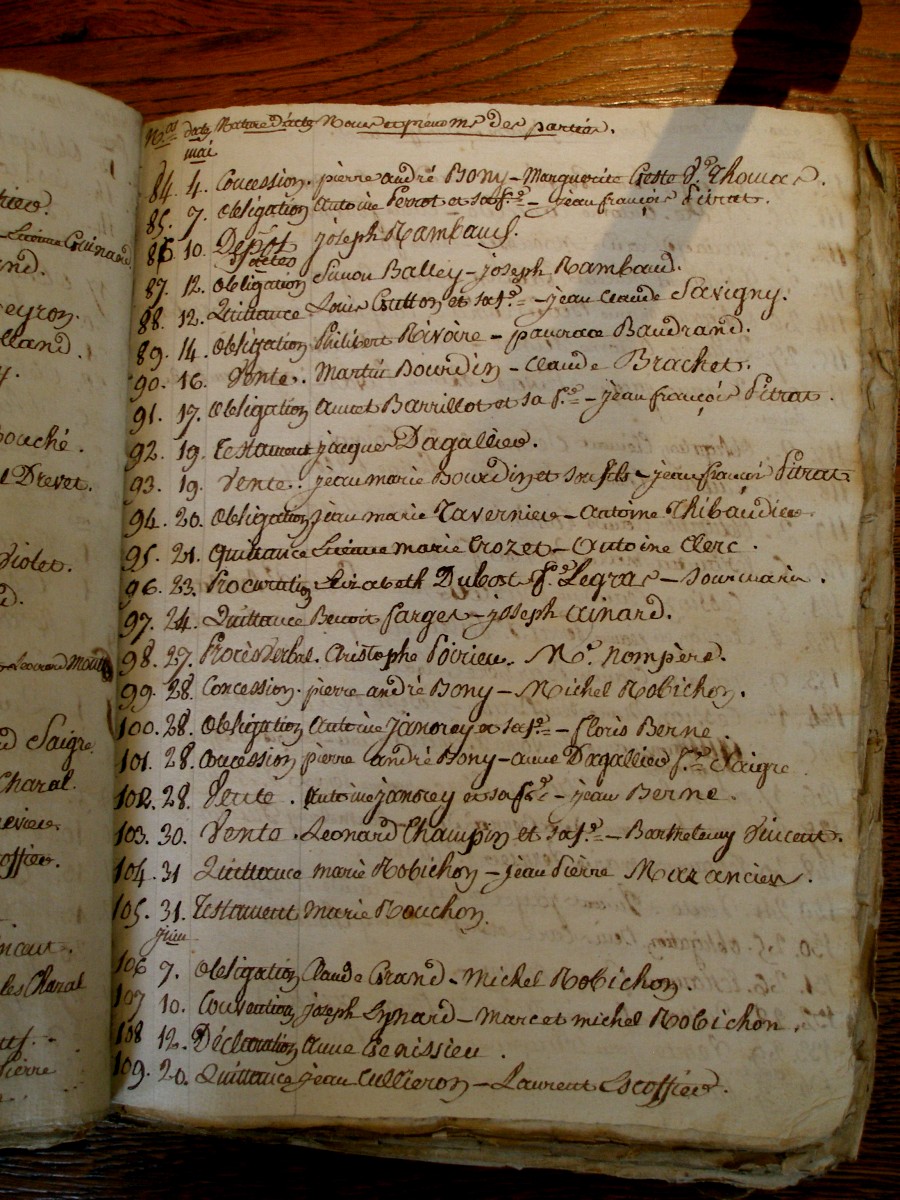 rieu.
Etienne Guinand
and.
eyron.
lland.
y.
bouché.
Drevet.
Violet.
d.
Leonard
d Saigre
Charal.
evieu
coffier.
les Charal
Pierre
N.os dates Nature d'actes Noms et prénoms des parties.
mai
84. 4. Concession. pierre andré Bony – Marguerite Creste f.e Thomas.
85. 7. Obligation Antoine Perrot et sa f.e – jean françois Pitrat.
86 10. Dépôt joseph Rambaud.
87. 12. Obligation Simon Balley – joseph Rambaud.
88. 12. Quittance Louis Coutton et sa f.e – jean claude Savigny.
89. 14. Obligation Philibert Rivoire – pancrace Baudrand.
90. 16. Vente. Martin Bourdin – Claude Brachet.
91. 17. Obligation Barrillot et sa f.e – jean françois Pitrat.
92. 19. Testament jacques Dagallier.
93. 19. Vente. jean marie Bourdin et son fils – jean françois Pitrat
94. 20. Obligation jean marie Tavernier – Antoine Thibaudier.
95. 21. Quittance Etienne marie Crozet – Antoine Clerc.
96. 23. Procuration Elizabeth Dubost f.e Legras – son mari.
97. 24. Quittance Benoit farges – joseph Ainard.
98. 27. Procès Verbal. Christophe Poirieu. M.e Nompère.
99. 28. Concession. pierre andré Bony – Michel Robichon.
100. 28. Obligation Antoine Janorey et sa f.e – floris Berne.
101. 28. Concession pierre andré Bony – anne Dagallier f.e Saigre
102. 28. Vente. Antoine janorey et sa f.e – jean Berne.
103. 30. Vente. Leonard Champin et sa f.e – Barthelemy Vincent.
104. 31 Quittance marie Robichon – jean Pierre Mazancieu.
105. 31. Testament marie Rouchon.
juin
106 7. Obligation Claude Grand – Michel Robichon.
107 10. Convention joseph Eynard – Marc et michel Robichon.
108 12. Déclaration anne Genissieu.
109. 20. Quittance jean Cullieron – Laurent Escoffier.